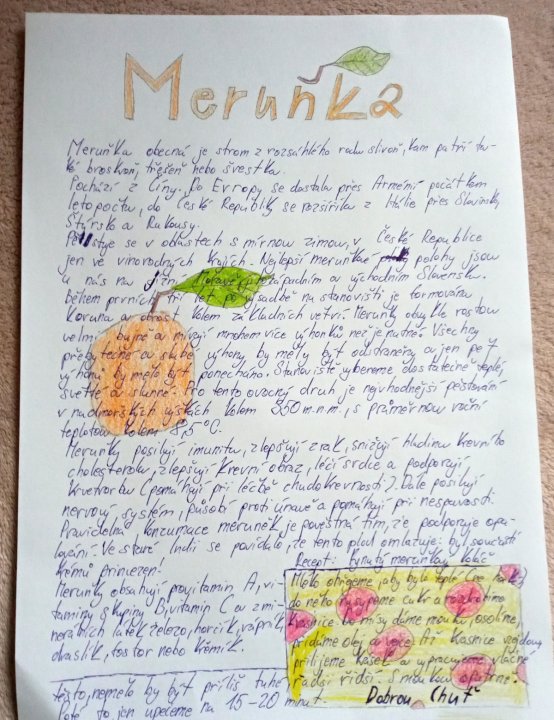 Meruňka
Meruňka obecná je strom z rozsáhlého rodu slivoň, kam patří ta-
ké broskvoň, třešeň nebo švestka.
Pochází z Číny. Do Evropy se dostala přes Arménii počátkem
letopočtu, do České Republiky se rozšířila z Itálie přes Slavinsky
Štýrsko a Rakousy.
Pěstuje se v oblastech s mírnou zimou, v České Republice
jen ve vinorodných krajích. Nejlepší meruňkové polohy jsou
u nás na jižní Moravě, západním a východním Slovensku.
Během prvních tří let po výsadbě na stanovišti je formována
koruna a obrost kolem základních větví. Meruňky obvykle rostou
velmi bujně a mívají mnohem více výhonků než je nutné. Všechny
přebytečné a slabé výhony by měly být odstraněny a jen pe 7
výhonů by mělo být ponecháno. Stanoviště vybereme dostatečně teplé,
světlé a slunné. Pro tento ovocný druh je nejvhodnější pěstování
v nadmořských výškách kolem 350 m.n.m., s průměrnou roční
teplotou kolem 8,5°C.
Meruňky posilují imunitu, zlepšují zrak, snižují hladinu krevního
cholesterolu, zlepšují krevní obraz, léčí srdce a podporují
krvetvorbu (pomáhají při léčbě chudokrevnosti). Dále posilují
nervový systém, působí proti únavě a pomáhají při nespavosti.
Pravidelná konzumace meruněk je pověstná tím, že podporuje opa-
lování. Ve staré Indii se povídalo, že tento plod omlazuje: byl součástí
krémů princezen!
Meruňky obsahují provitamin A, vi-
taminy skupiny B, vitamin C a z mi-
nerálních látek železo, hořčík, vápník,
draslík, fosfor nebo křemík.
Recept: Kynutý meruňkový koláč
Mléko ohřejeme, aby bylo teplé (ne horké)
do něho nasypeme cukr a rozdrobíme
kvasnice. Do mísy dáme mouku, osolíme,
přidáme olej a vejce. Až kvasnice vejdou,
přilijeme kašel a vypracujeme vláčné
řadší řidší. S moukou opatrně.
těsto, nemělo by být příliš tuhé,
poté to jen upečeme na 15-20 minut.
Dobrou Chuť